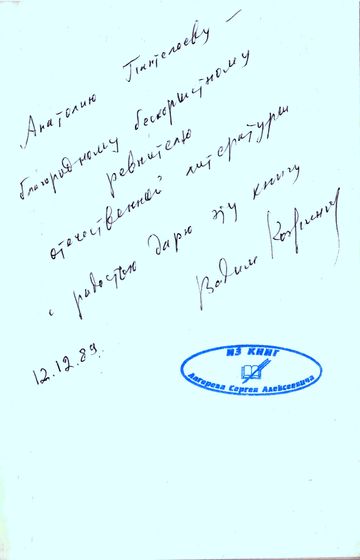 Анатолию Пантелееву –
благородному бескорыстному
ревнителю
отечественной литературы
с радостью дарю эту книгу
Вадим Кожинов
12.12.89.
ИЗ КНИГ
Сергея Алексеевича